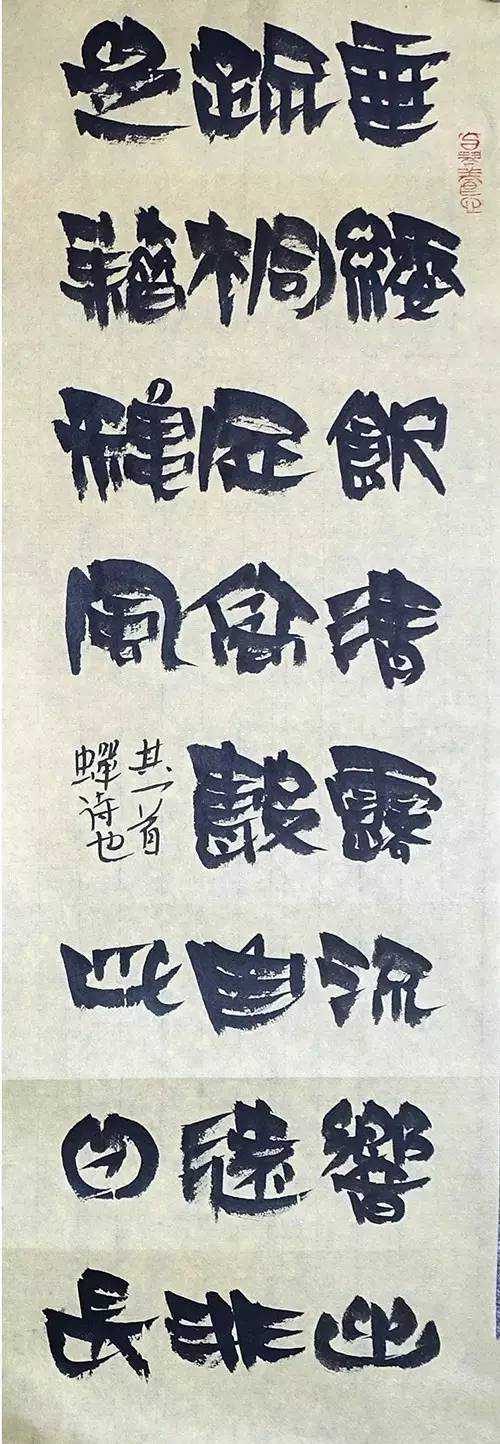 垂緌飲清露流響出
疏桐居高聲自遠非
是藉秋風
其一首
蟬诗也
長